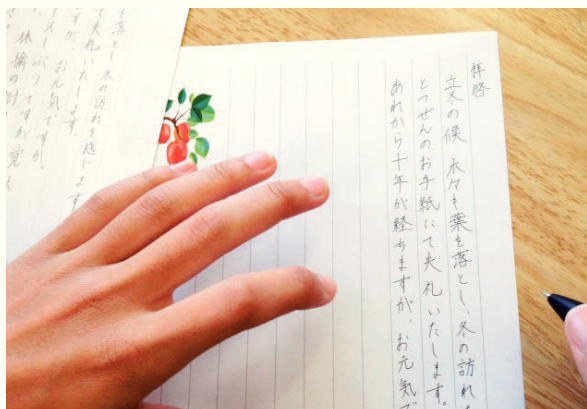 拝啓
立冬の候 木々も葉を落とし、冬の訪れ
とつぜんのお手紙にて失礼いたします。
あれから十年が経ちますが、お元気で
落とし、冬の訪れを感じます
失礼いたします。
が お元気ですか。
ぶりですが
林檎の